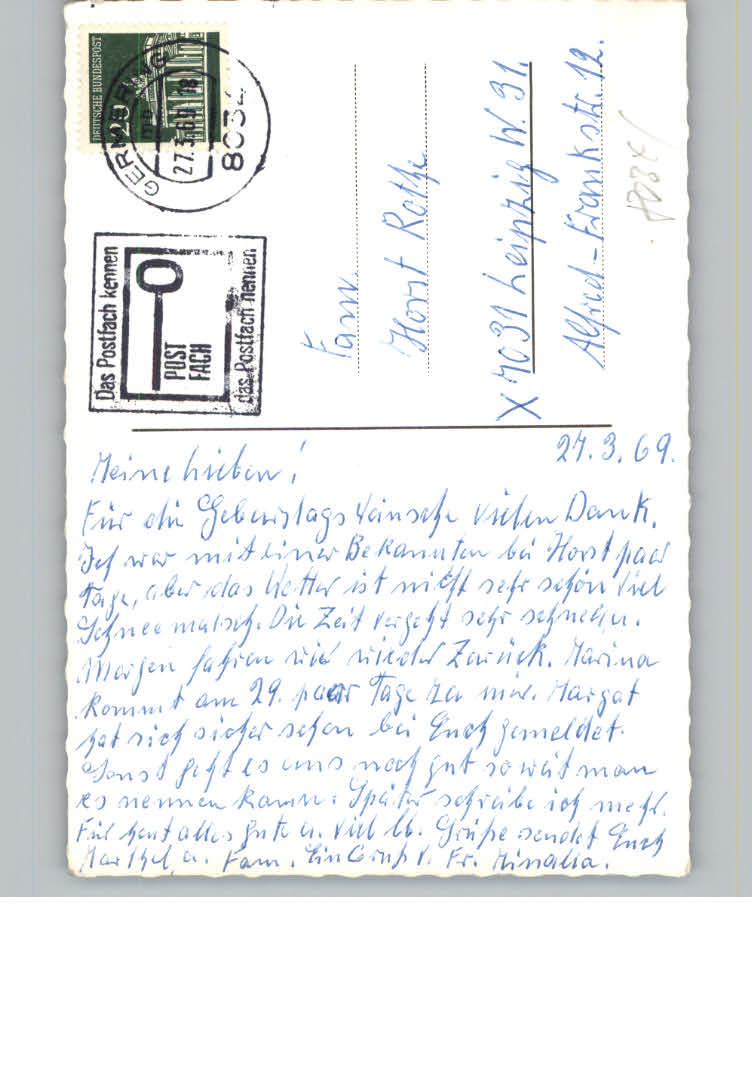 DEUTSCHE BUNDESPOST
20
GERMERING
27.3.69
18
8034
Das Postfach kennen
POST
FACH
das Postfach nennen
Fam.
Horst Rothe
X 7031 Leipzig W. 31.
Alfred-Frankstr. 12.
27.3.69.
Meine Lieben!
Für die Geburtstags Wünsche vielen Dank.
Ich war mit einer Bekannten bei Horst paar
Tage, aber das Wetter ist nicht sehr schön viel
Schnee matsch. Die Zeit vergeht sehr schnell.
Morgen fahren wir wieder Zurück. Marina
kommt am 29. paar Tage zu mir. Margat
hat sich sicher schon bei Euch gemeldet.
Sonst geht es uns noch gut soweit man
es nennen kann. Später schreibe ich mehr.
Für heut alles gute u. viel lb. Grüße sendet Euch
u. Fam. Ein Gruß v. Fr.